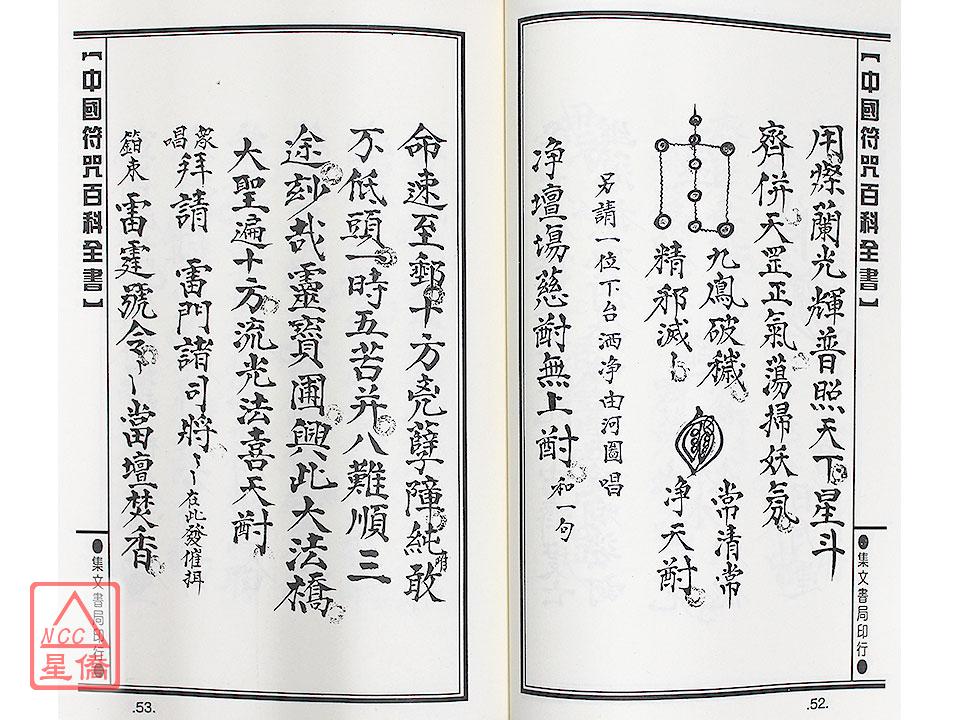 【中國符咒百科全書】
用燦蘭光輝普照天下星斗
齊併天罡正氣蕩掃妖氛
九鳳破穢
精邪滅
常清常
净天酎
另請一位下台洒净由河圖唱
净壇場慈酎無上酎 和一句
集文書局印行
.52.
【中國符咒百科全書】
命速至郵十方堯孽障純敢
不低頭一時五苦并八難順三
途刻哉靈寶圃興此大法橋
大聖遍十方流光法喜天酎
衆唱 拜請 雷門諸司將〻 在此發催揖
雷霆號令〻當壇焚香
集文書局印行
.53.
NCC
星僑